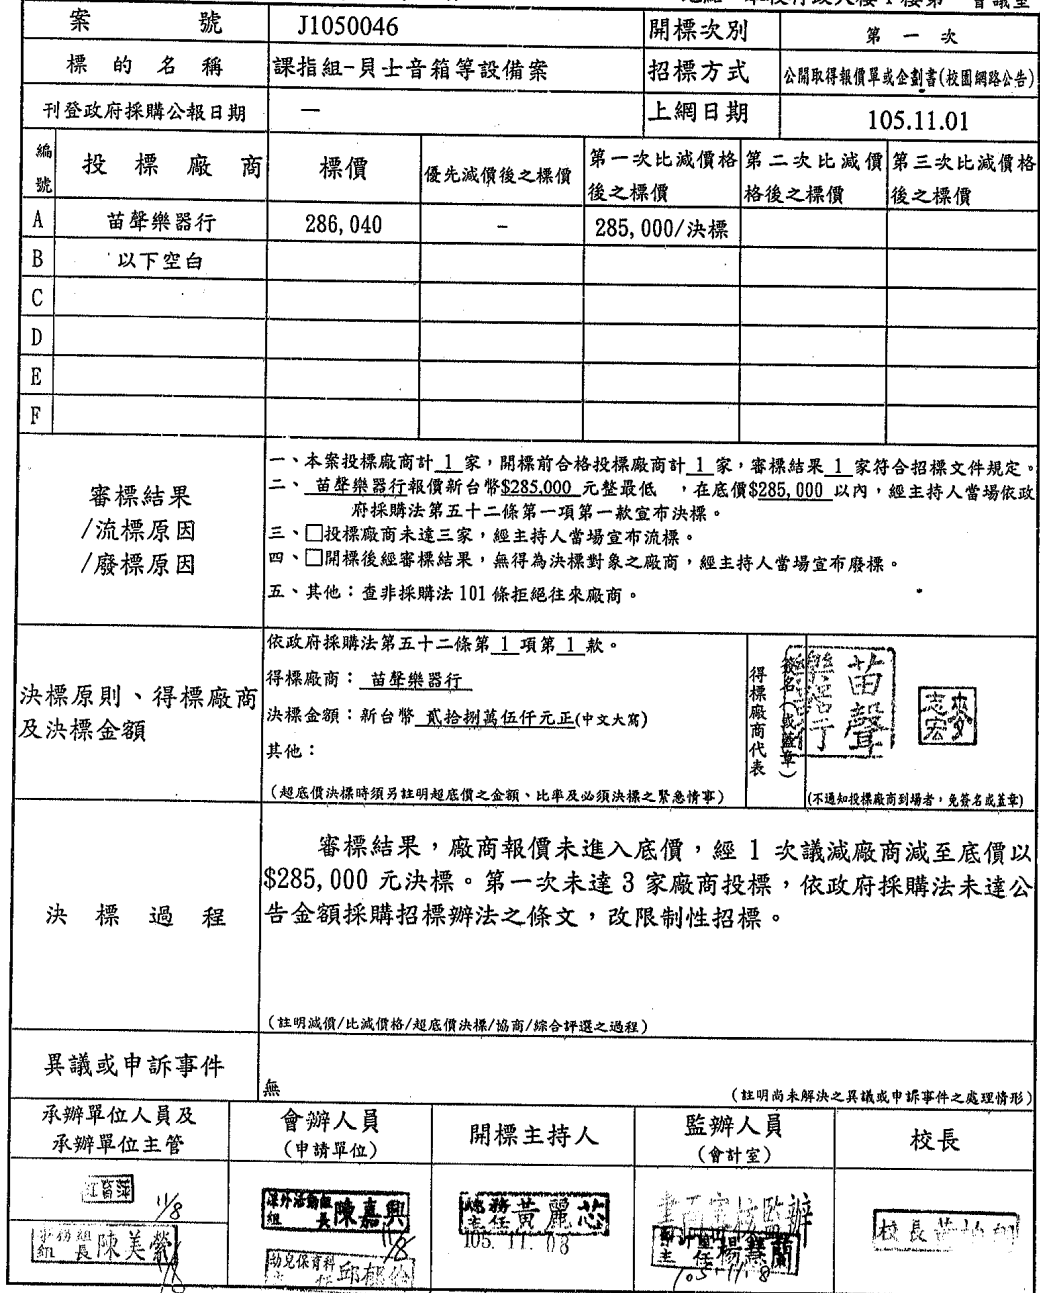 案號 J1050046 開標次別 第一次
標的名稱 課指組-貝士音箱等設備案 招標方式 公開取得報價單或企劃書(校園網路公告)
刊登政府採購公報日期 — 上網日期 105.11.01
編號 投標廠商 標價 優先減價後之標價 第一次比減價格後之標價 第二次比減價格後之標價 第三次比減價格後之標價
A 苗聲樂器行 286,040 - 285,000/決標
B 以下空白
C
D
E
F
審標結果
/流標原因
/廢標原因
一、本案投標廠商計 1 家，開標前合格投標廠商計 1 家，審標結果 1 家符合招標文件規定。
二、 苗聲樂器行報價新台幣$285,000 元整最低 ，在底價$285,000 以內，經主持人當場依政
府採購法第五十二條第一項第一款宣布決標。
三、□投標廠商未達三家，經主持人當場宣布流標。
四、□開標後經審標結果，無得為決標對象之廠商，經主持人當場宣布廢標。
五、其他：查非採購法 101 條拒絕往來廠商。
決標原則、得標廠商
及決標金額
依政府採購法第五十二條第 1 項第 1 款。
得標廠商： 苗聲樂器行
決標金額：新台幣 貳拾捌萬伍仟元正(中文大寫)
其他：
(超底價決標時須另註明超底價之金額、比率及必須決標之緊急情事)
得標廠商代表
簽名(或蓋章)
苗聲
樂器行
麥志宏
(不通知投標廠商到場者，免簽名或蓋章)
決標過程
審標結果，廠商報價未進入底價，經 1 次議減廠商減至底價以
$285,000 元決標。第一次未達 3 家廠商投標，依政府採購法未達公
告金額採購招標辦法之條文，改限制性招標。
(註明減價/比減價格/超底價決標/協商/綜合評選之過程)
異議或申訴事件
無
(註明尚未解決之異議或申訴事件之處理情形)
承辦單位人員及
承辦單位主管
會辦人員
(申請單位)
開標主持人
監辦人員
(會計室)
校長
11/8
事務組長陳美縈
課外活動組組長陳嘉興
11/8
幼兒保育科
總務主任黃麗芯
105.11.08
書面審核監辦
會計室主任楊慧蘭
105.11.8
校長